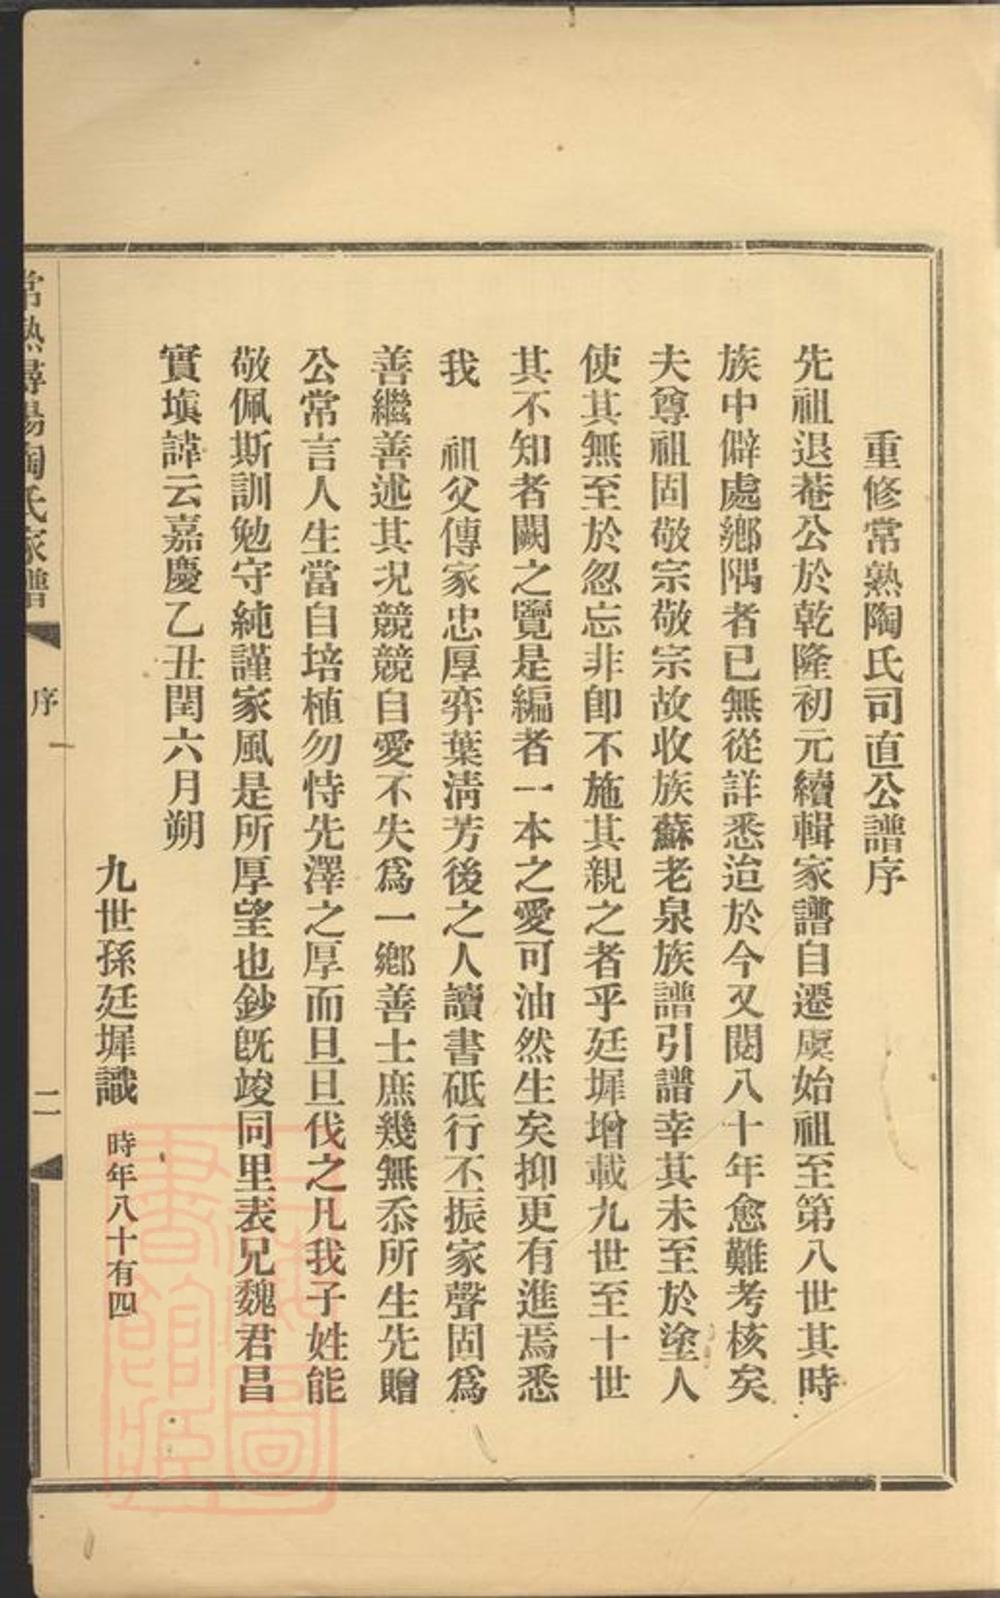 重修常熟陶氏司直公譜序
先祖退菴公於乾隆初元續輯家譜自遷虞始祖至第八世其時
族中僻處鄉隅者已無從詳悉迨於今又閱八十年愈難考核矣
夫尊祖固敬宗敬宗故收族蘇老泉族譜引譜幸其未至於塗人
使其無至於忽忘非卽不施其親之者乎廷墀增載九世至十世
其不知者闕之覽是編者一本之愛可油然生矣抑更有進焉悉
我　祖父傳家忠厚弈葉清芳後之人讀書砥行丕振家聲固爲
善繼善述其次兢兢自愛不失爲一鄉善士庶幾無忝所生先贈
公常言人生當自培植勿恃先澤之厚而旦旦伐之凡我子姓能
敬佩斯訓勉守純謹家風是所厚望也鈔旣竣同里表兄魏君昌
實填諱云嘉慶乙丑閏六月朔
九世孫廷墀識　時年八十有四
常熟潯陽陶氏家譜
序
一
二